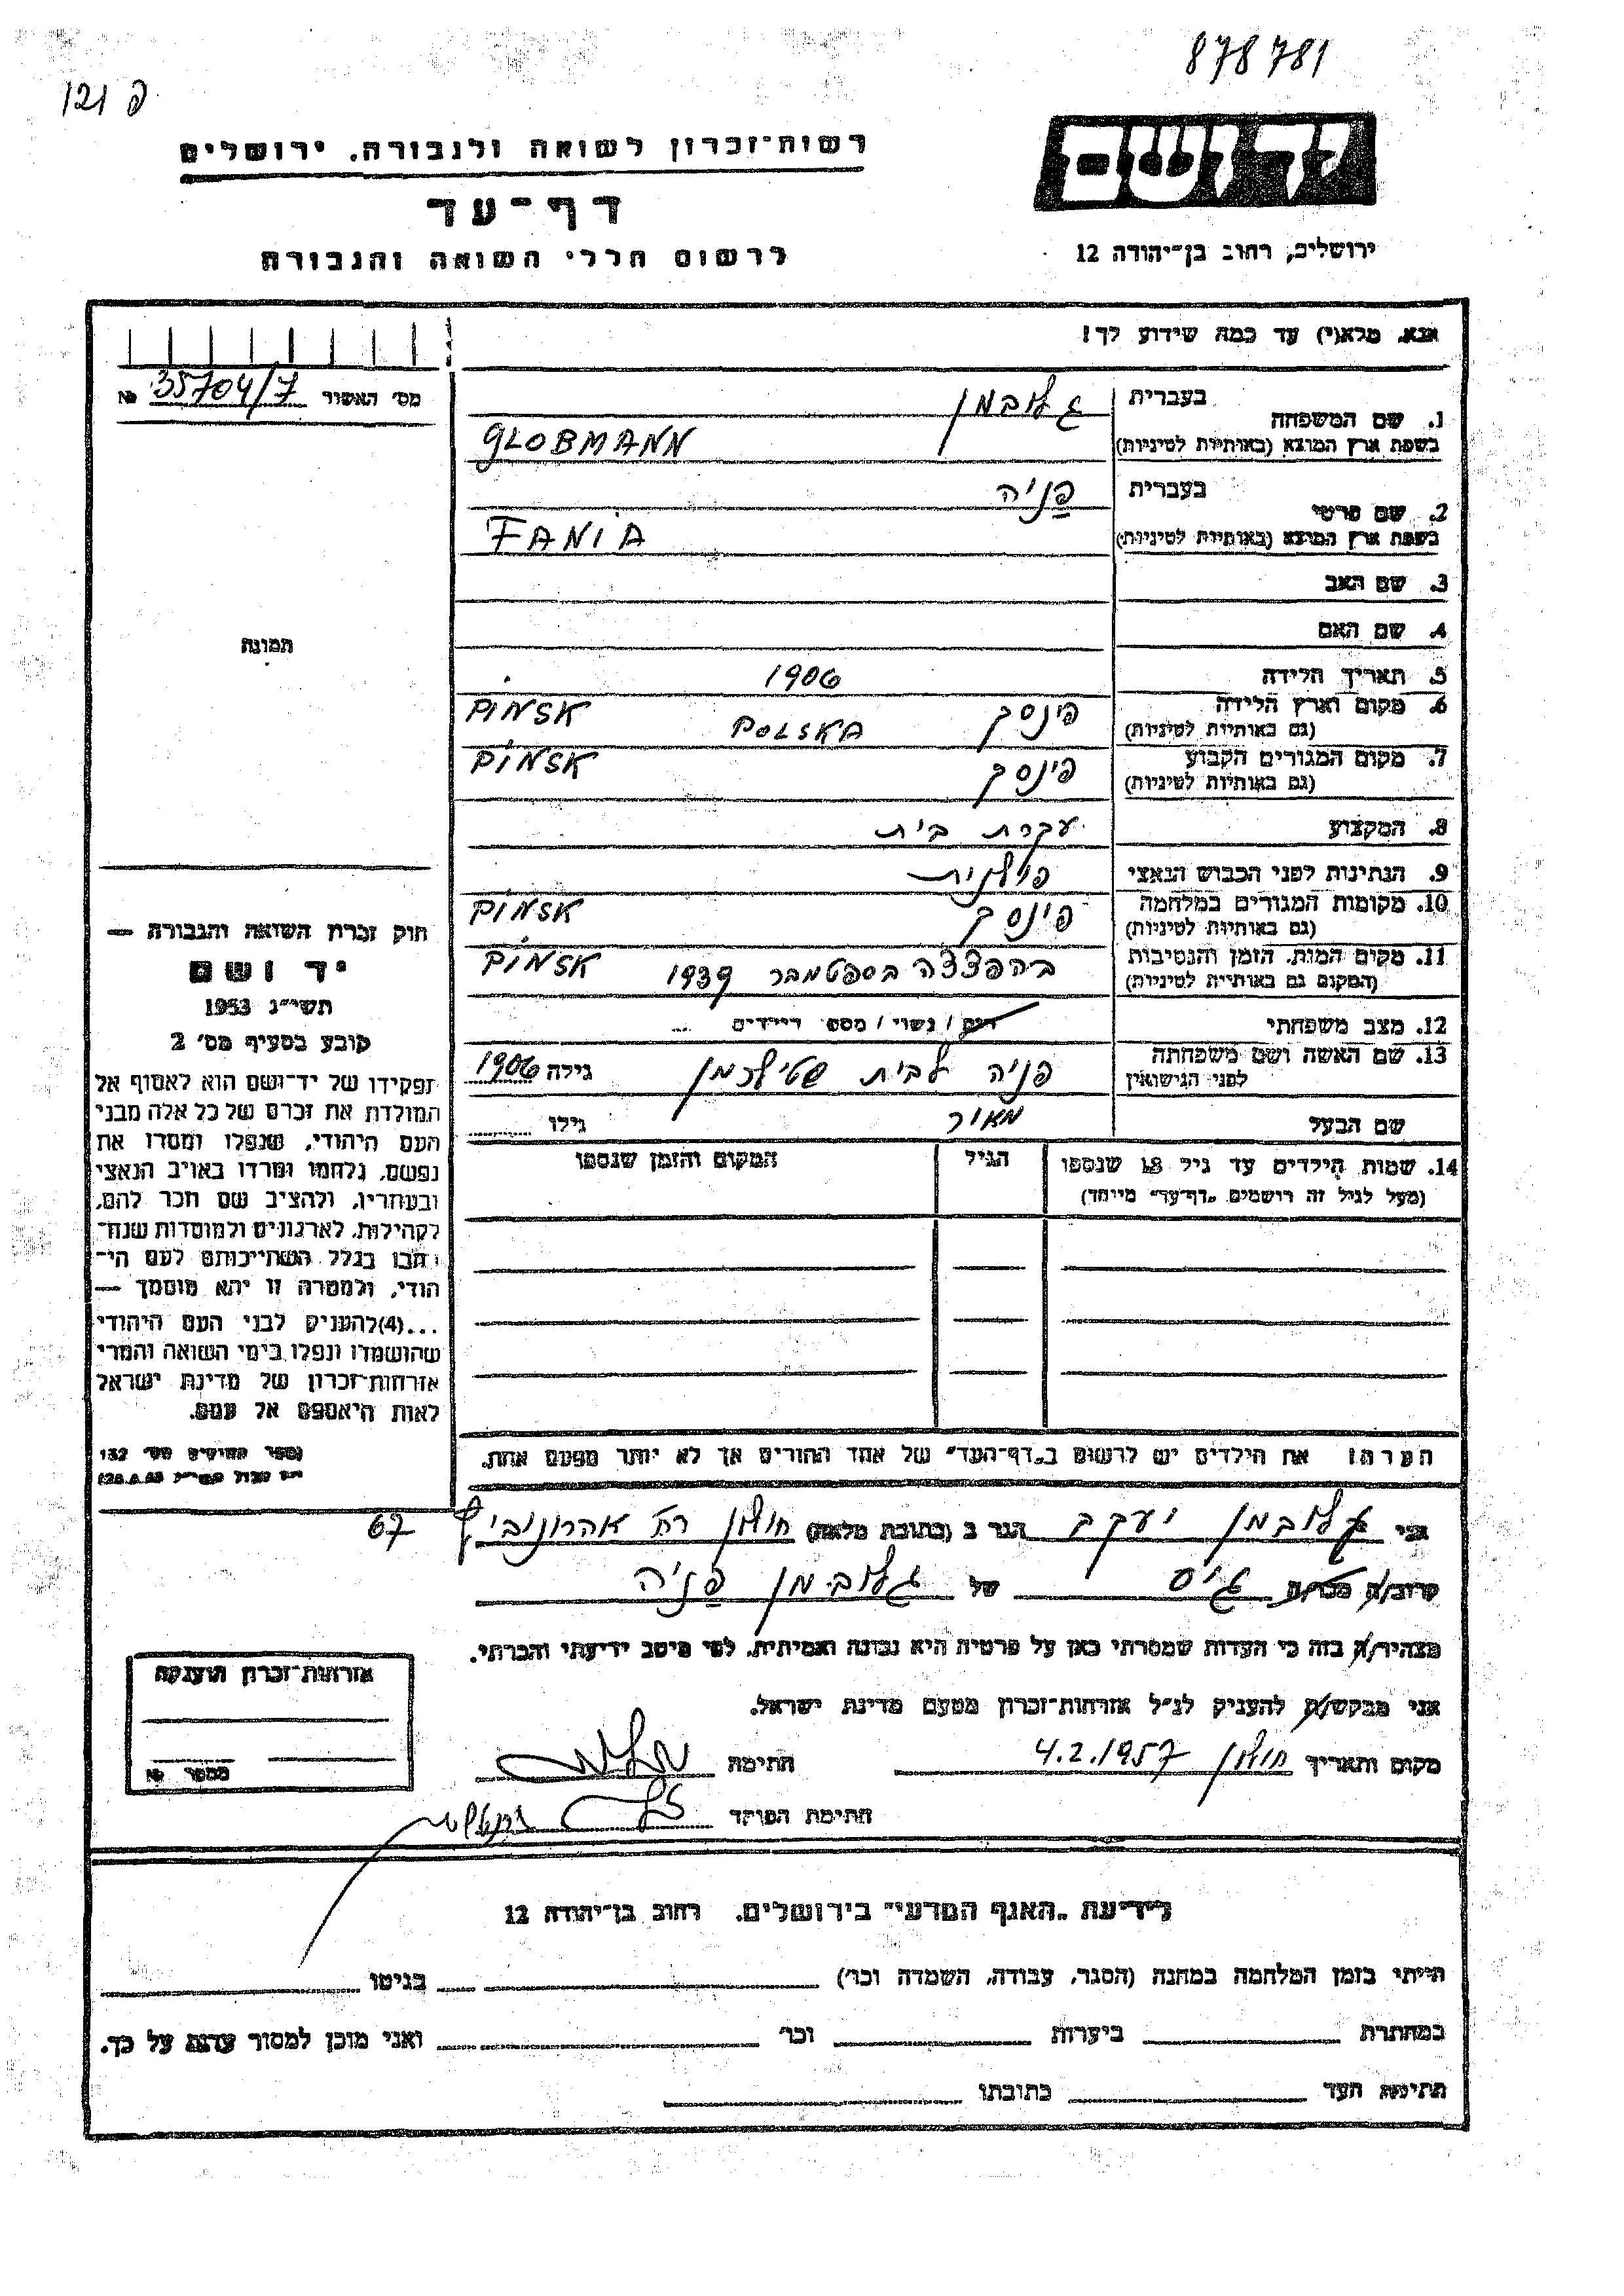 878781
פ 121
יד ושם
רשות־זכרון לשואה ולגבורה, ירושלים
דף־עד
לרשום חללי השואה והגבורה
ירושלים, רחוב בן־יהודה 12
אנא, מלא(י) עד כמה שידוע לך!
מס׳ האשור 35704/7 №
1. שם המשפחה
בעברית גלובמן
בשפת ארץ המוצא (באותיות לטיניות) GLOBMANN
2. שם פרטי
בעברית פניה
בשפת ארץ המוצא (באותיות לטיניות) FANIA
3. שם האב
4. שם האם
תמונה
5. תאריך הלידה 1906
6. מקום וארץ הלידה (גם באותיות לטיניות) פינסק POLSKA PINSK
7. מקום המגורים הקבוע (גם באותיות לטיניות) פינסק PINSK
8. המקצוע עקרת בית
9. הנתינות לפני הכבוש הנאצי פולנית
10. מקומות המגורים במלחמה (גם באותיות לטיניות) פינסק PINSK
11. מקום המות, הזמן והנסיבות (המקום גם באותיות לטיניות) בהפצצה בספטמבר 1939 PINSK
12. מצב משפחתי / נשוי / מספר הילדים
13. שם האשה ושם משפחתה לפני הנישואין פניה לבית שטילרמן גילה 1906
שם הבעל מאור גילו
14. שמות הילדים עד גיל 18 שנספו
(מעל לגיל זה רושמים „דף־עד״ מיוחד)
הגיל
המקום והזמן שנספו
הערה: את הילדים יש לרשום ב„דף־העד״ של אחד ההורים אך לא יותר מפעם אחת.
חוק זכרון השואה והגבורה —
יד ושם
תשי״ג 1953
קובע בסעיף מס׳ 2
תפקידו של יד־ושם הוא לאסוף אל
המולדת את זכרם של כל אלה מבני
העם היהודי, שנפלו ומסרו את
נפשם, נלחמו ומרדו באויב הנאצי
ובעוזריו, ולהציב שם וזכר להם,
לקהילות, לארגונים ולמוסדות שנח־
רבו בגלל השתייכותם לעם הי־
הודי, ולמטרה זו יהא מוסמך —
...(4)להעניק לבני העם היהודי
שהושמדו ונפלו בימי השואה והמרי
אזרחות־זכרון של מדינת ישראל
לאות היאספם אל עמם.
(ספר החוקים מס׳ 132
אני גלובמן יעקב הגר ב (כתובת מלאה) חולון רח׳ אהרונוביץ 67
קרוב/ה מכר/ה גיס של גלובמן פניה
מצהיר/ה בזה כי העדות שמסרתי כאן על פרטיה היא נכונה ואמיתית, לפי מיטב ידיעתי והכרתי.
אני מבקש/ת להעניק לנ״ל אזרחות־זכרון מטעם מדינת ישראל.
מקום ותאריך חולון 4.2.1957 חתימה
חתימת הפוקד
אזרחות־זכרון הוענקה
מספר №
לידיעת „האגף המדעי״ בירושלים, רחוב בן־יהודה 12
הייתי בזמן המלחמה במחנה (הסגר, עבודה, השמדה וכו׳) בגיטו
במחתרת ביערות וכו׳ ואני מוכן למסור עדות על כך.
חתימת העד כתובתו